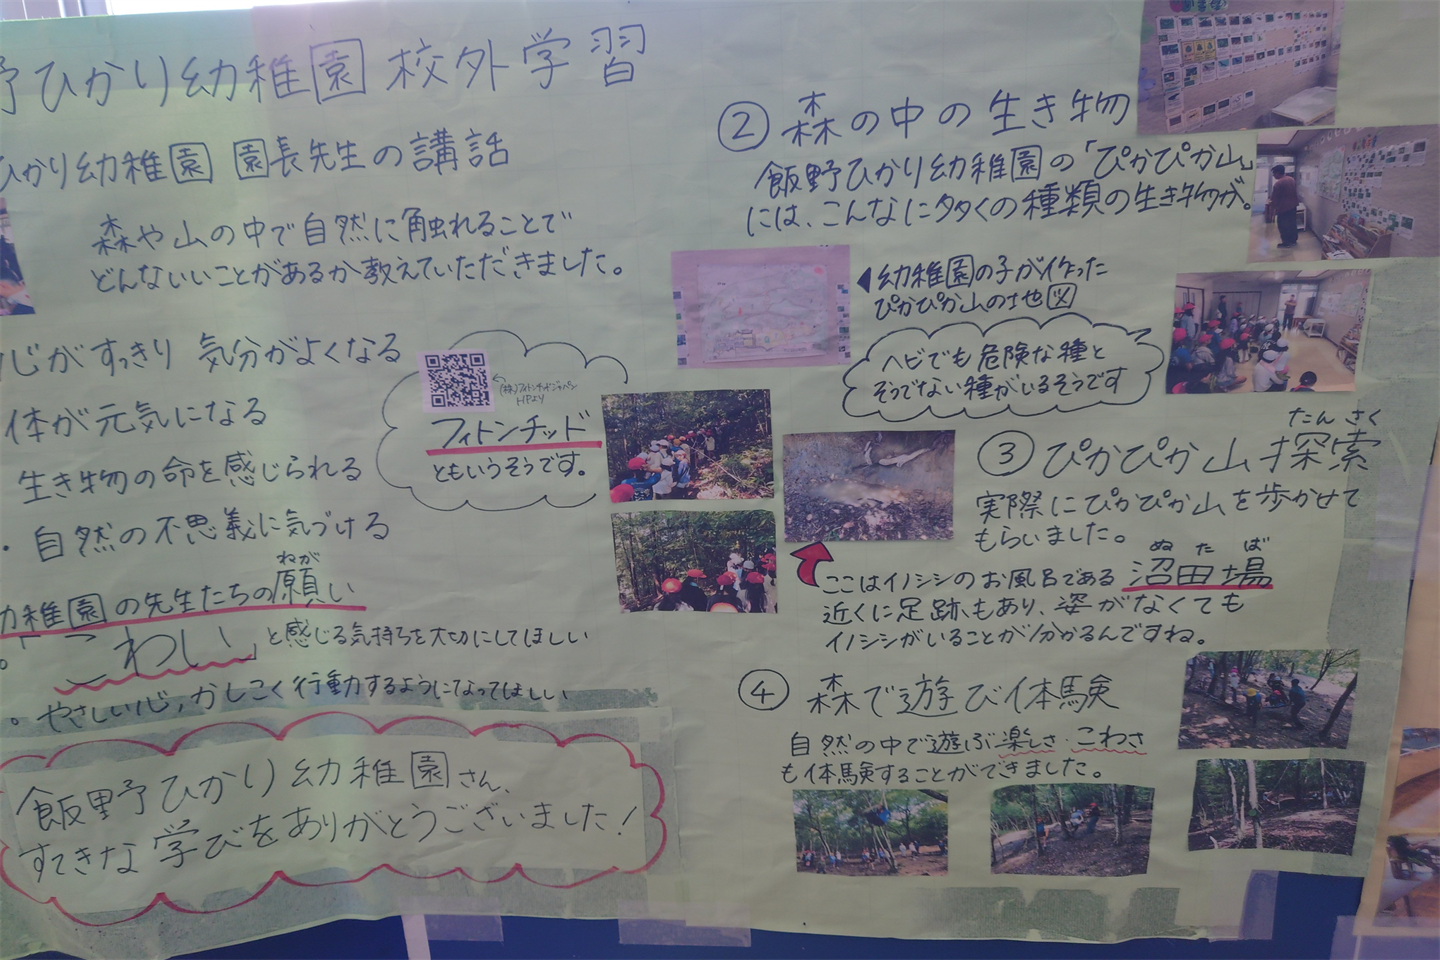 野ひかり幼稚園 校外学習
ひかり幼稚園 園長先生の講話
森や山の中で自然に触れることで
どんないいことがあるか教えていただきました。
心がすっきり 気分がよくなる
体が元気になる
生き物の命を感じられる
・自然の不思議に気づける
(株)フィトンチッドジャパン
HPより
フィトンチッド
ともいうそうです。
ねが
幼稚園の先生たちの願い
。「こわい」と感じる気持ちを大切にしてほしい
。やさしい心、かしこく行動するようになってほしい
飯野ひかり幼稚園さん、
すてきな学びをありがとうございました!
② 森の中の生き物
飯野ひかり幼稚園の「ぴかぴか山」
には、こんなに多くの種類の生き物が。
◀幼稚園の子が作った
ぴかぴか山の地図
ヘビでも危険な種と
そうでない種がいるそうです
たんさく
③ ぴかぴか山探索
実際にぴかぴか山を歩かせて
もらいました。
ぬたば
ここはイノシシのお風呂である 沼田場
近くに足跡もあり、姿がなくても
イノシシがいることが分かるんですね。
④ 森で遊び体験
自然の中で遊ぶ楽しさ・こわさ
も体験することができました。